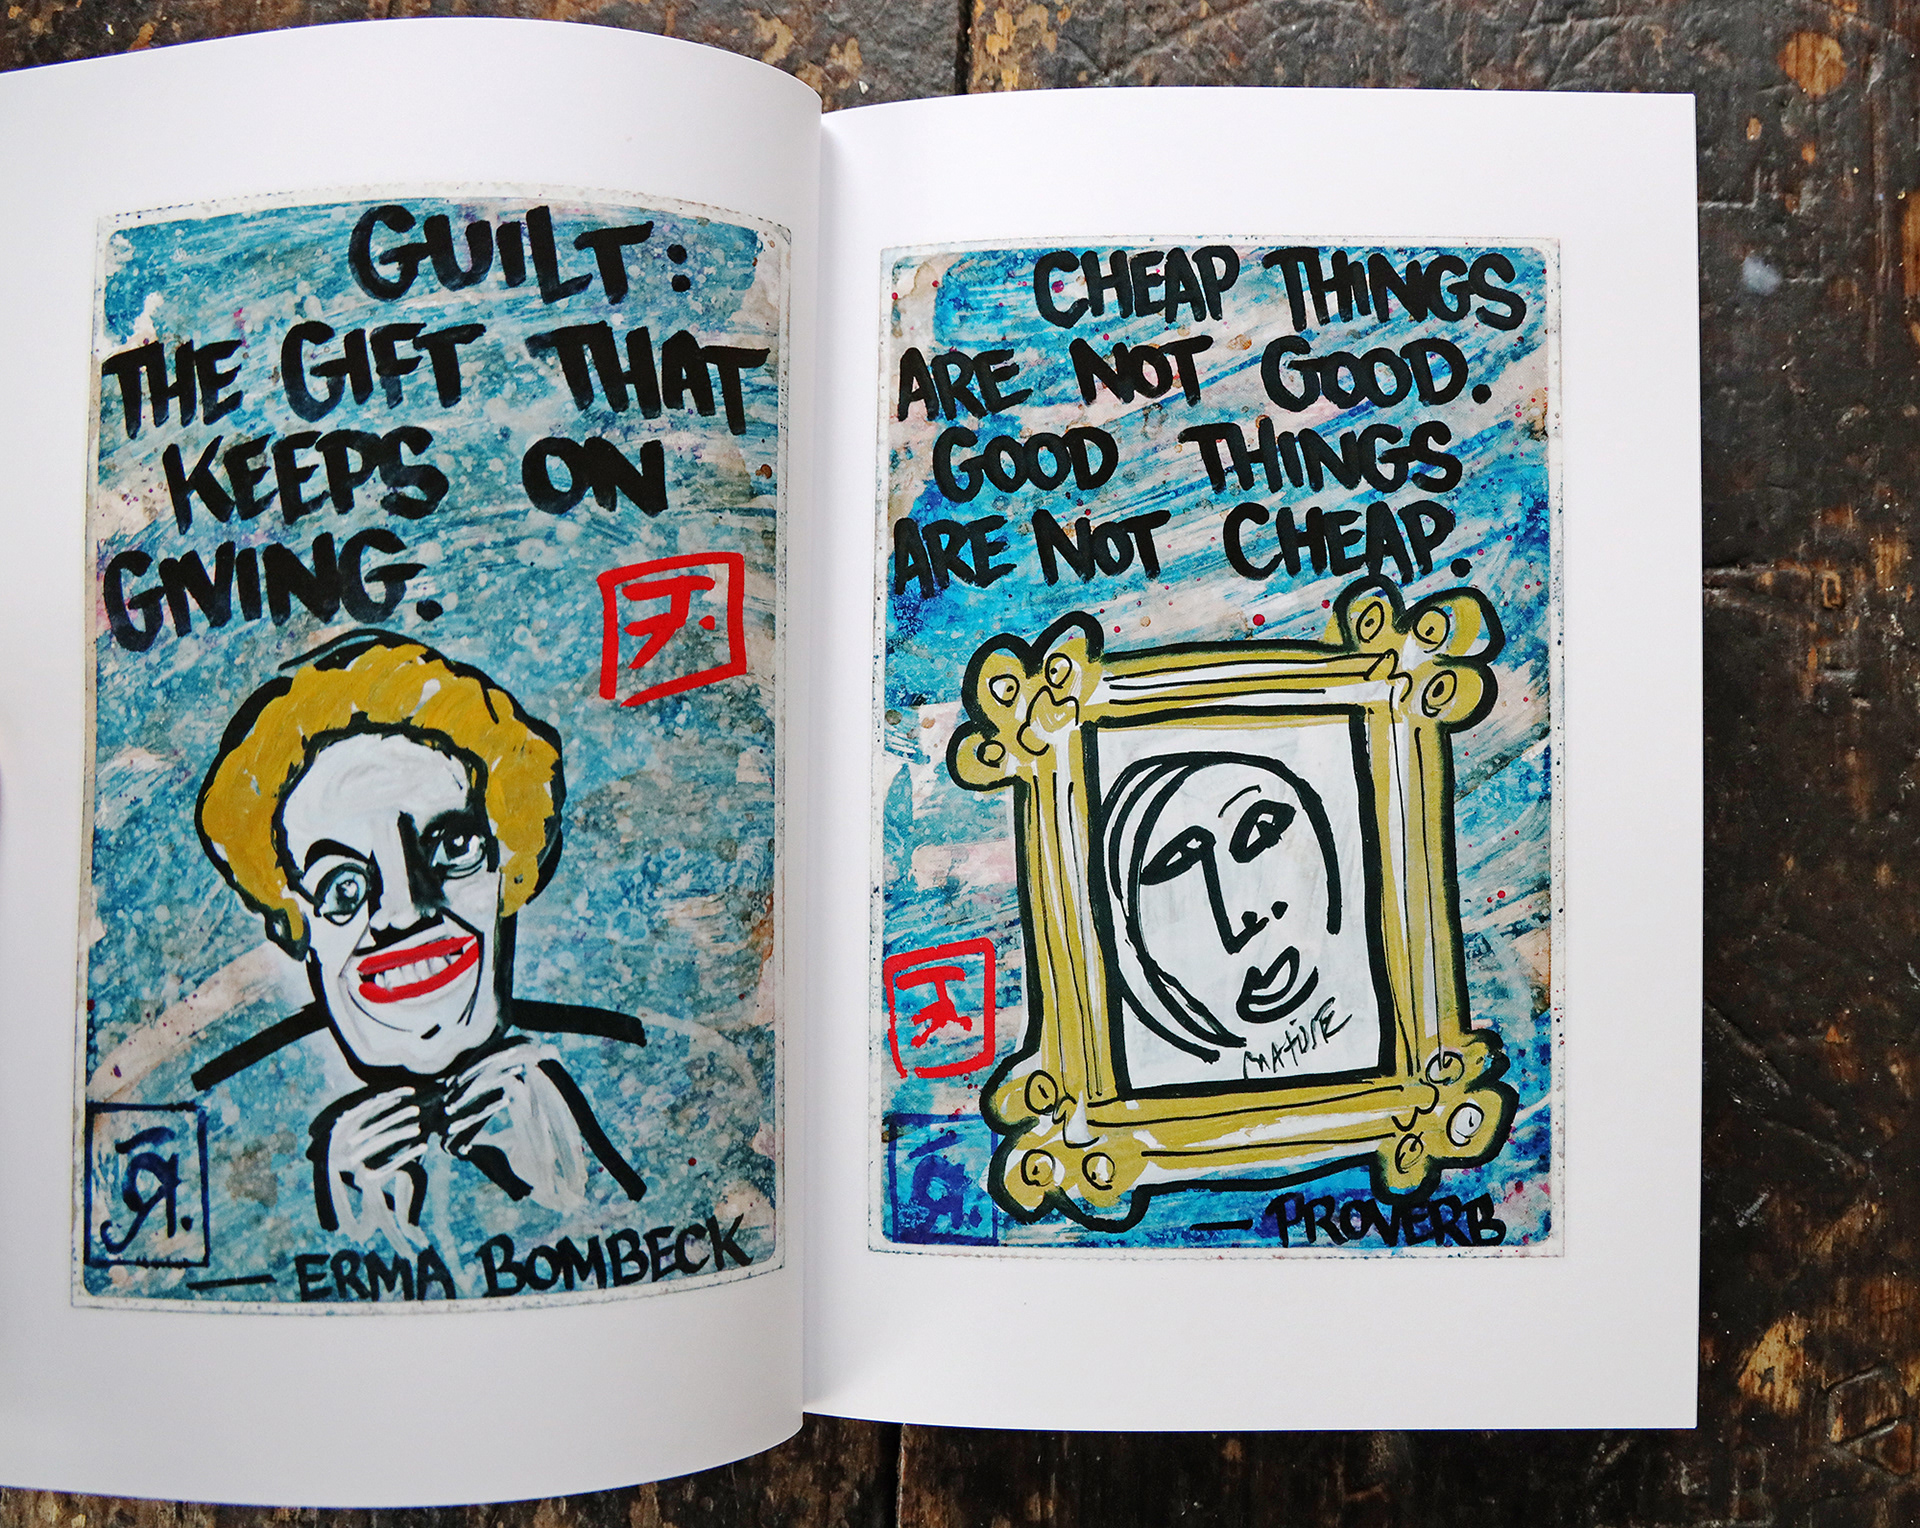 GUILT:
THE GIFT THAT
KEEPS ON
GIVING.
— ERMA BOMBECK
CHEAP THINGS
ARE NOT GOOD.
GOOD THINGS
ARE NOT CHEAP.
— PROVERB